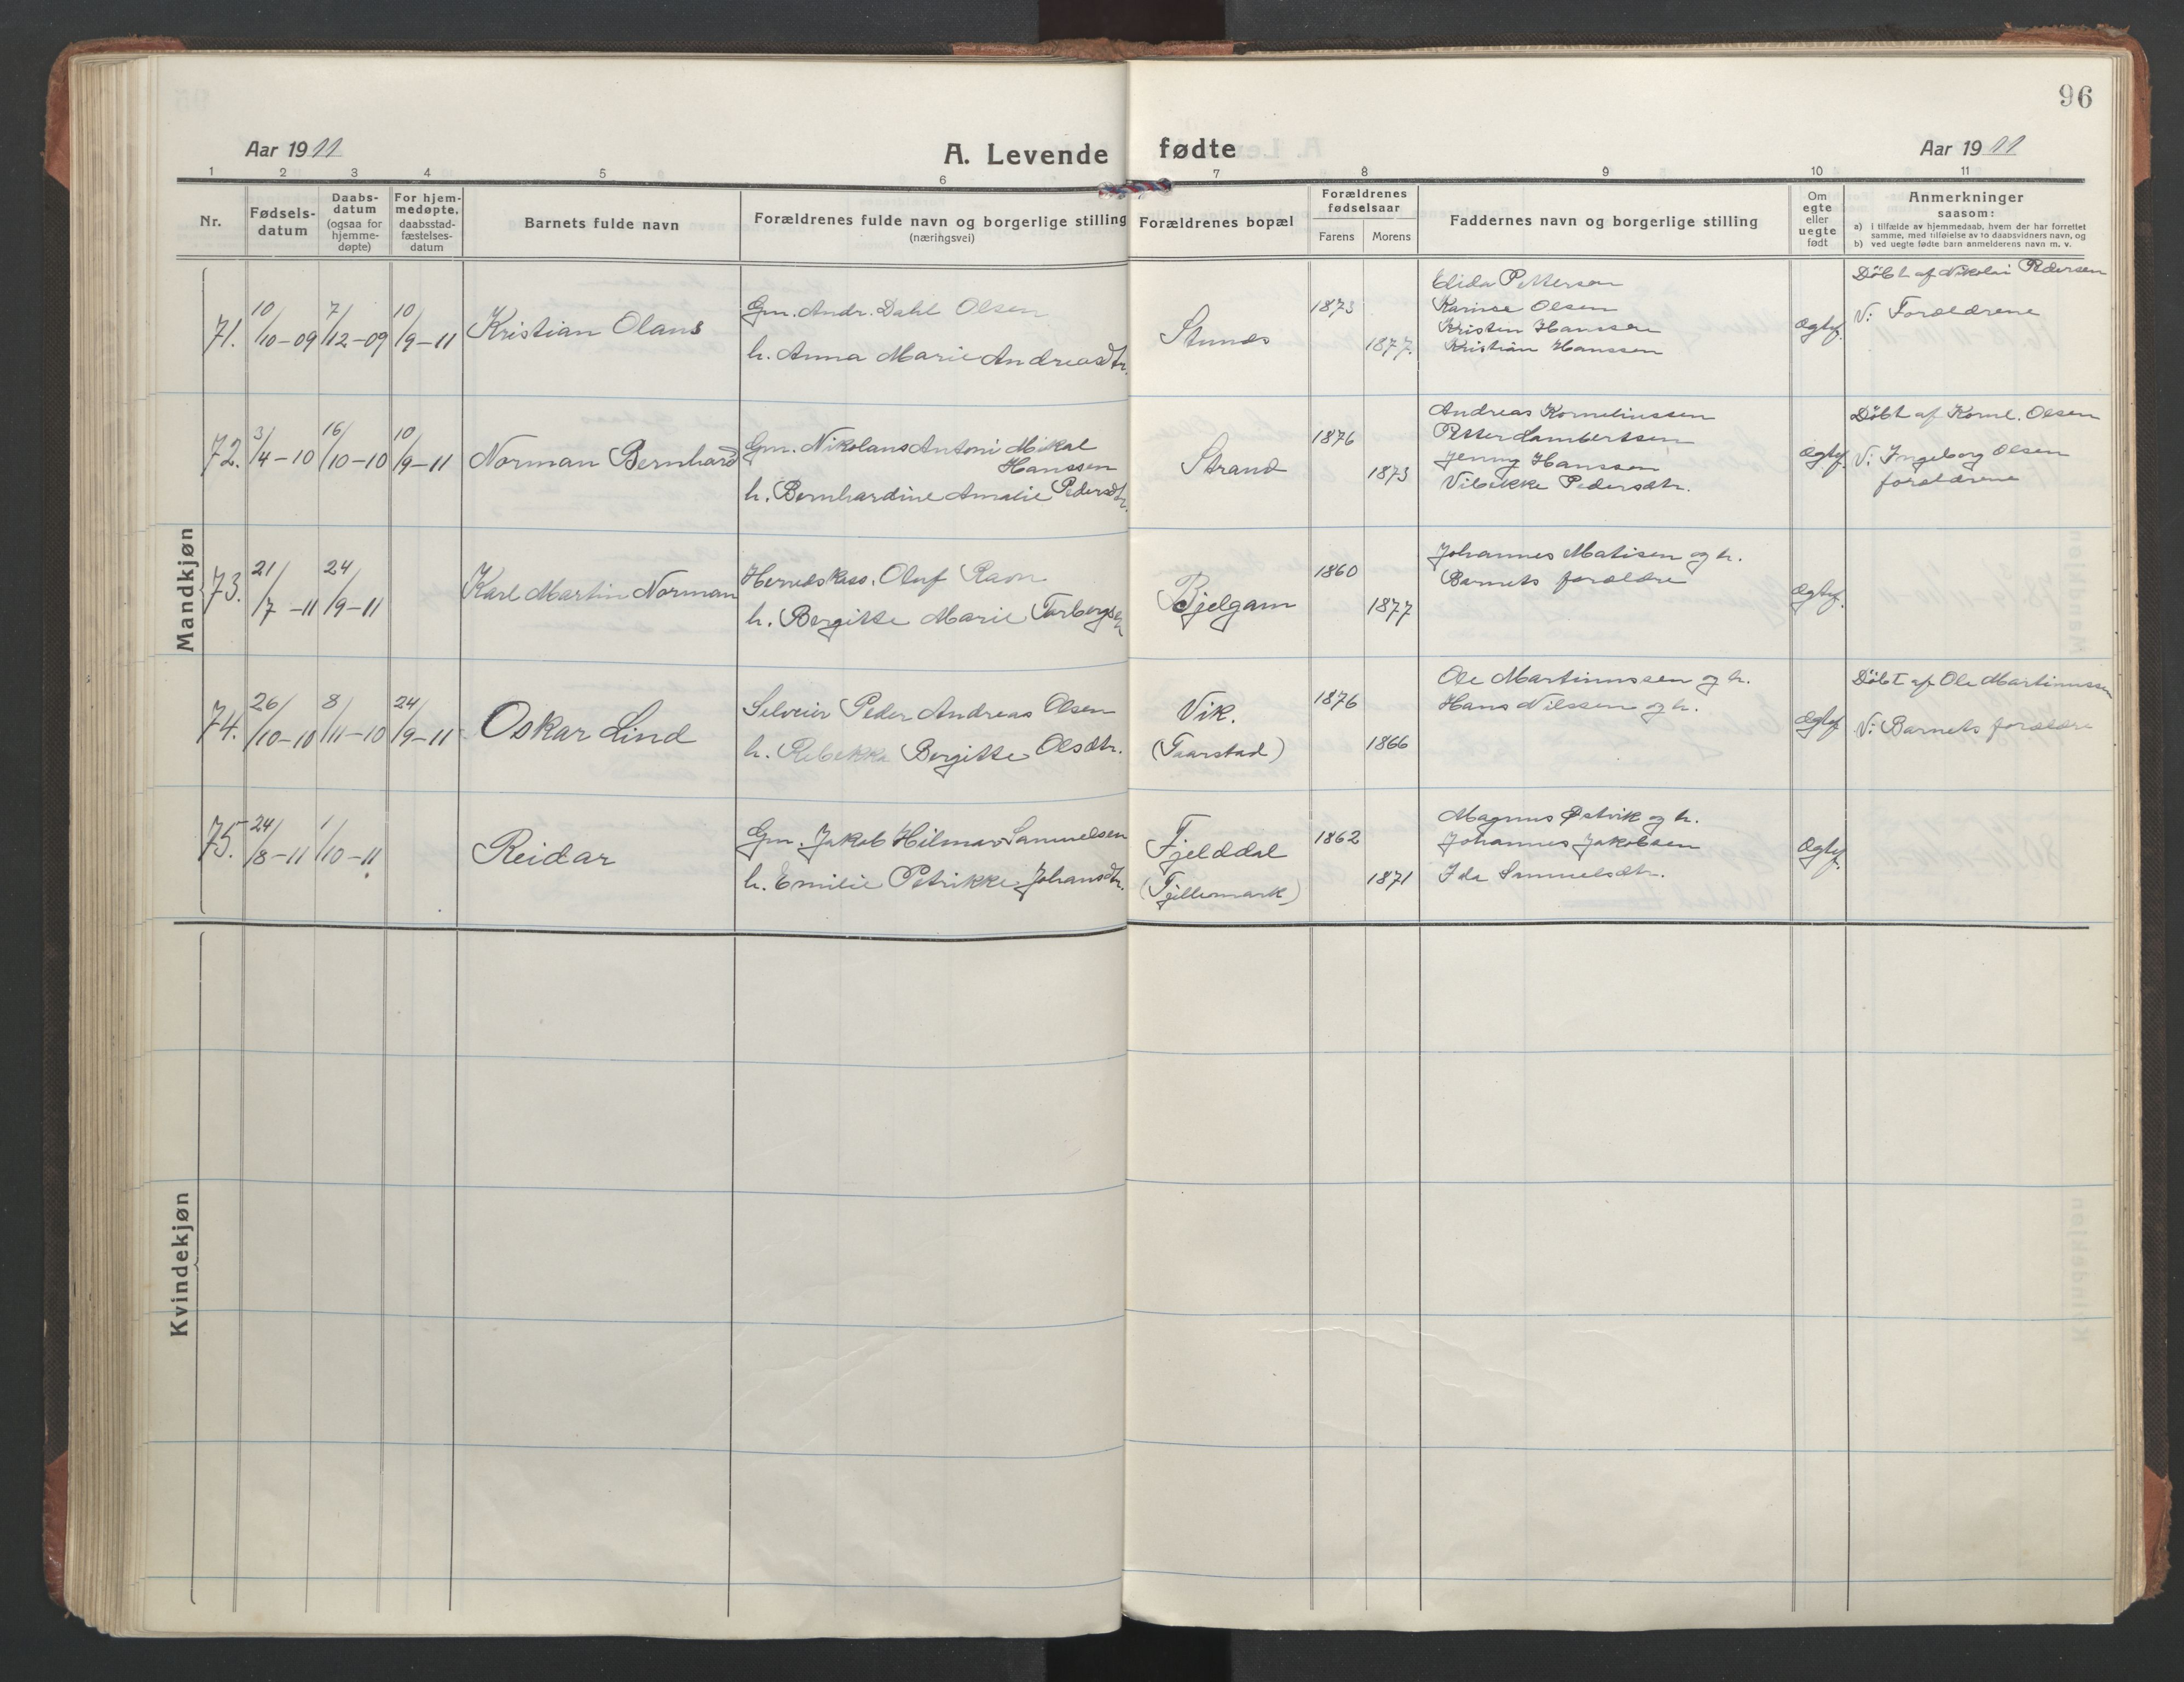 96
Aar 1911
A. Levende fødte
Aar 1911
1 2 3 4 5 6 7 8 9 10 11
Nr.
Fødsels-
datum
Daabs-
datum
(ogsaa for
hjemme-
døpte)
For hjem-
medøpte,
daabsstad-
fæstelses-
datum
Barnets fulde navn
Forældrenes fulde navn og borgerlige stilling
(næringsvei)
Forældrenes bopæl
Forældrenes
fødselsaar
Farens Morens
Faddernes navn og borgerlige stilling
Om
egte
eller
uegte
født
Anmerkninger
saasom:
a) i tilfælde av hjemmedaab, hvem der har forrettet
samme, med tilføielse av to daabsvidners navn, og
b) ved uegte fødte barn anmelderens navn m. v.
Mandkjøn
71. 10/10-09 7/12-09 10/9-11 Kristian Olaus
Gm. Andr. Dahl Olsen
h. Anna Marie Andreasdtr.
1873
1877.
Elida Pettersen
Karinse Olsen
Kristen Hanssen
Kristian Hanssen
ægtef.
Døbt af Nikolai Pedersen
V: Forældrene
72. 3/4-10 16/10-10 10/9-11 Norman Bernhard
Gm. Nikolaus Antoni Mikal
Hanssen
h. Bernhardine Amalie Pedersdtr.
Strand
1876
1873
Andreas Korneliussen
Petter Lambertsen
Jenny Hanssen
Vibekke Pedersdtr.
ægtef.
Døbt af Kornl. Olsen
V: Ingeborg Olsen
forældrene
73. 21/7-11 24/9-11 Karl Martin Norman
Herredskass. Oluf Ravn
h. Bergitte Marie Torbergsen
Bjelgam
1860
1877
Johannes Matisen og h.
Barnets forældre
ægtef.
74. 26/10-10 8/11-10 24/9-11 Oskar Lind
Selveier Peder Andreas Olsen
h. Rebekka Bergitte Olsdtr.
Vik.
(Taarstad)
1876
1866
Ole Martinussen og h.
Hans Nilssen og h.
ægtef
Døbt af Ole Martinussen
V: Barnets forældre
75. 24/8-11 1/10-11 Reidar
Gm. Jakob Hilmar Samuelsen
h. Emilie Petrikke Johansdtr.
Fjelddal
(Tjellemark)
1862
1871
Magnus Østvik og h.
Johannes Jakobsen
Ida Samuelsdtr.
ægtef.
Kvindekjøn